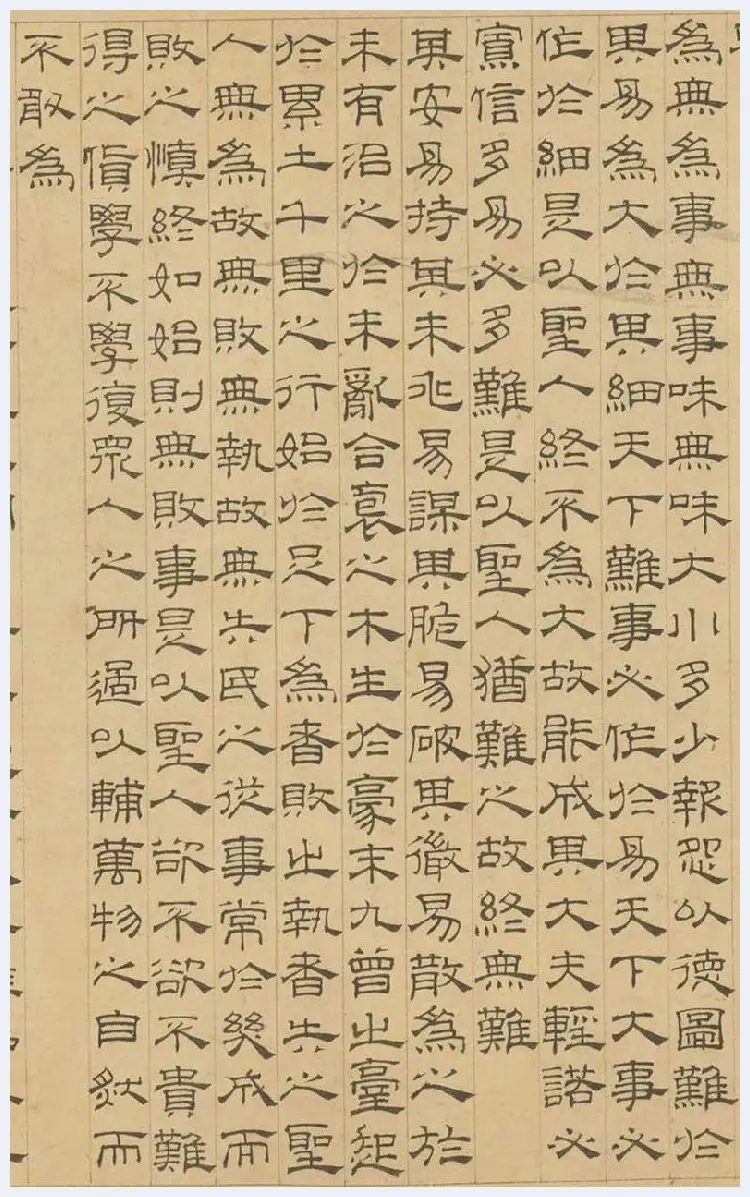 為無為事無事味無味大小多少報怨以德圖難於
其易為大於其細天下難事必作於易天下大事必
作於細是以聖人終不為大故能成其大夫輕諾必
寡信多易必多難是以聖人猶難之故終無難
其安易持其未兆易謀其脆易破其微易散為之於
未有治之於未亂合袌之木生於豪末九曾之臺起
於累土千里之行始於足下為者敗之執者失之聖
人無為故無敗無執故無失民之從事常於幾成而
敗之慎終如始則無敗事是以聖人欲不欲不貴難
得之貨學不學復眾人之所過以輔萬物之自然而
不敢為